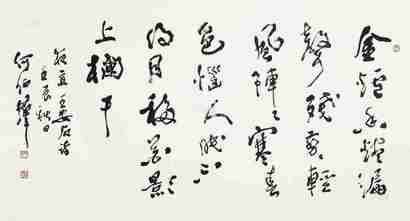 金爐香燼漏
聲殘剪々輕
風陣々寒春
色惱人眠不
得月移花影
上欄干
王安石詩
壬辰秋日
何